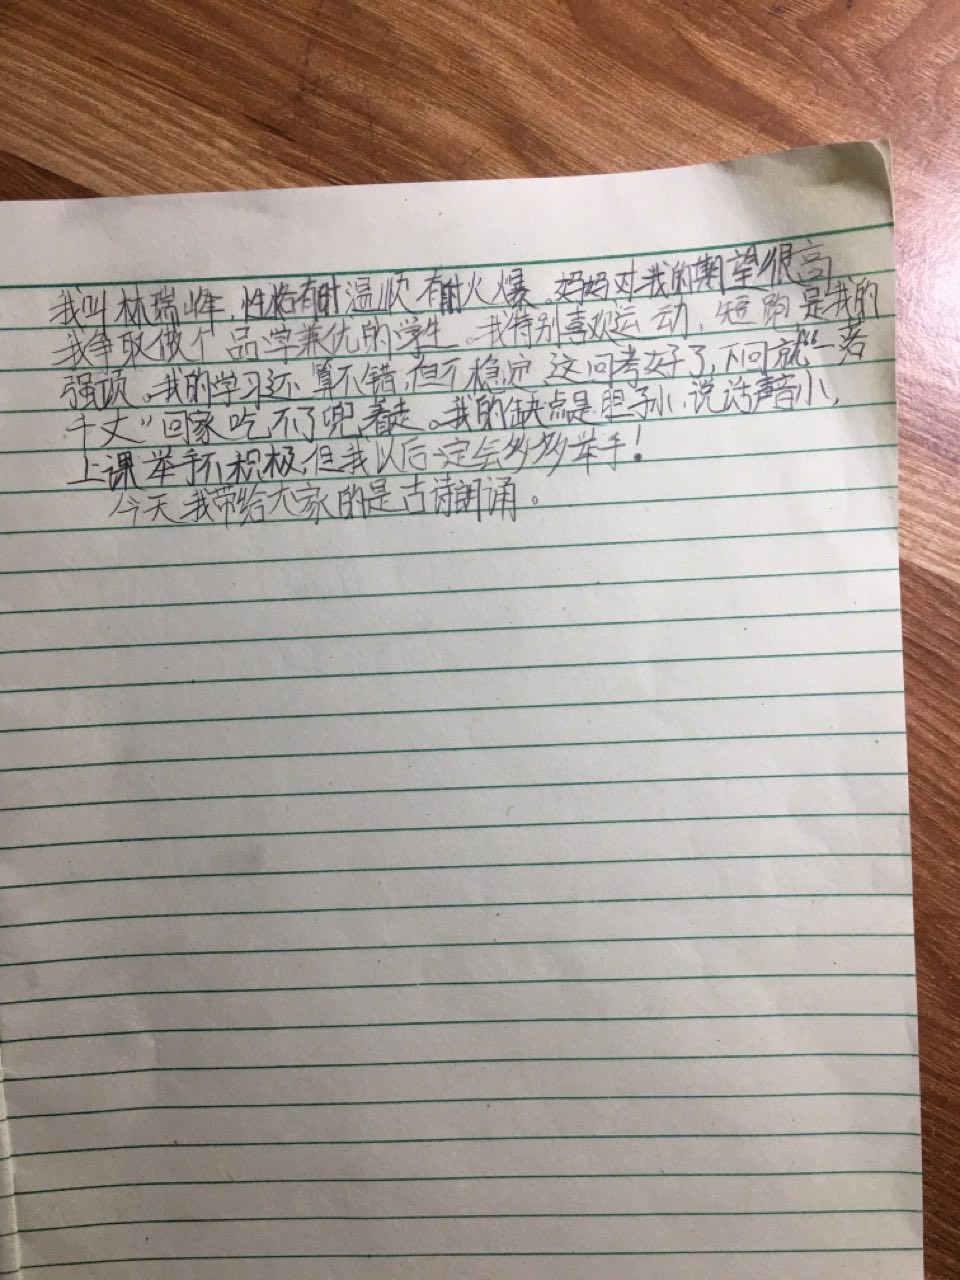 我叫林瑞峰，性格有时温顺，有时火爆。妈妈对我的期望很高，
我争取做个品学兼优的学生。我特别喜欢运动，短跑是我的
强项。我的学习还算不错，但不稳定，这回考好了，下回就“一落
千丈”回家吃不了兜着走。我的缺点是胆子小，说话声音小，
上课举手不积极，但我以后一定会多多举手！
今天我带给大家的是古诗朗诵。